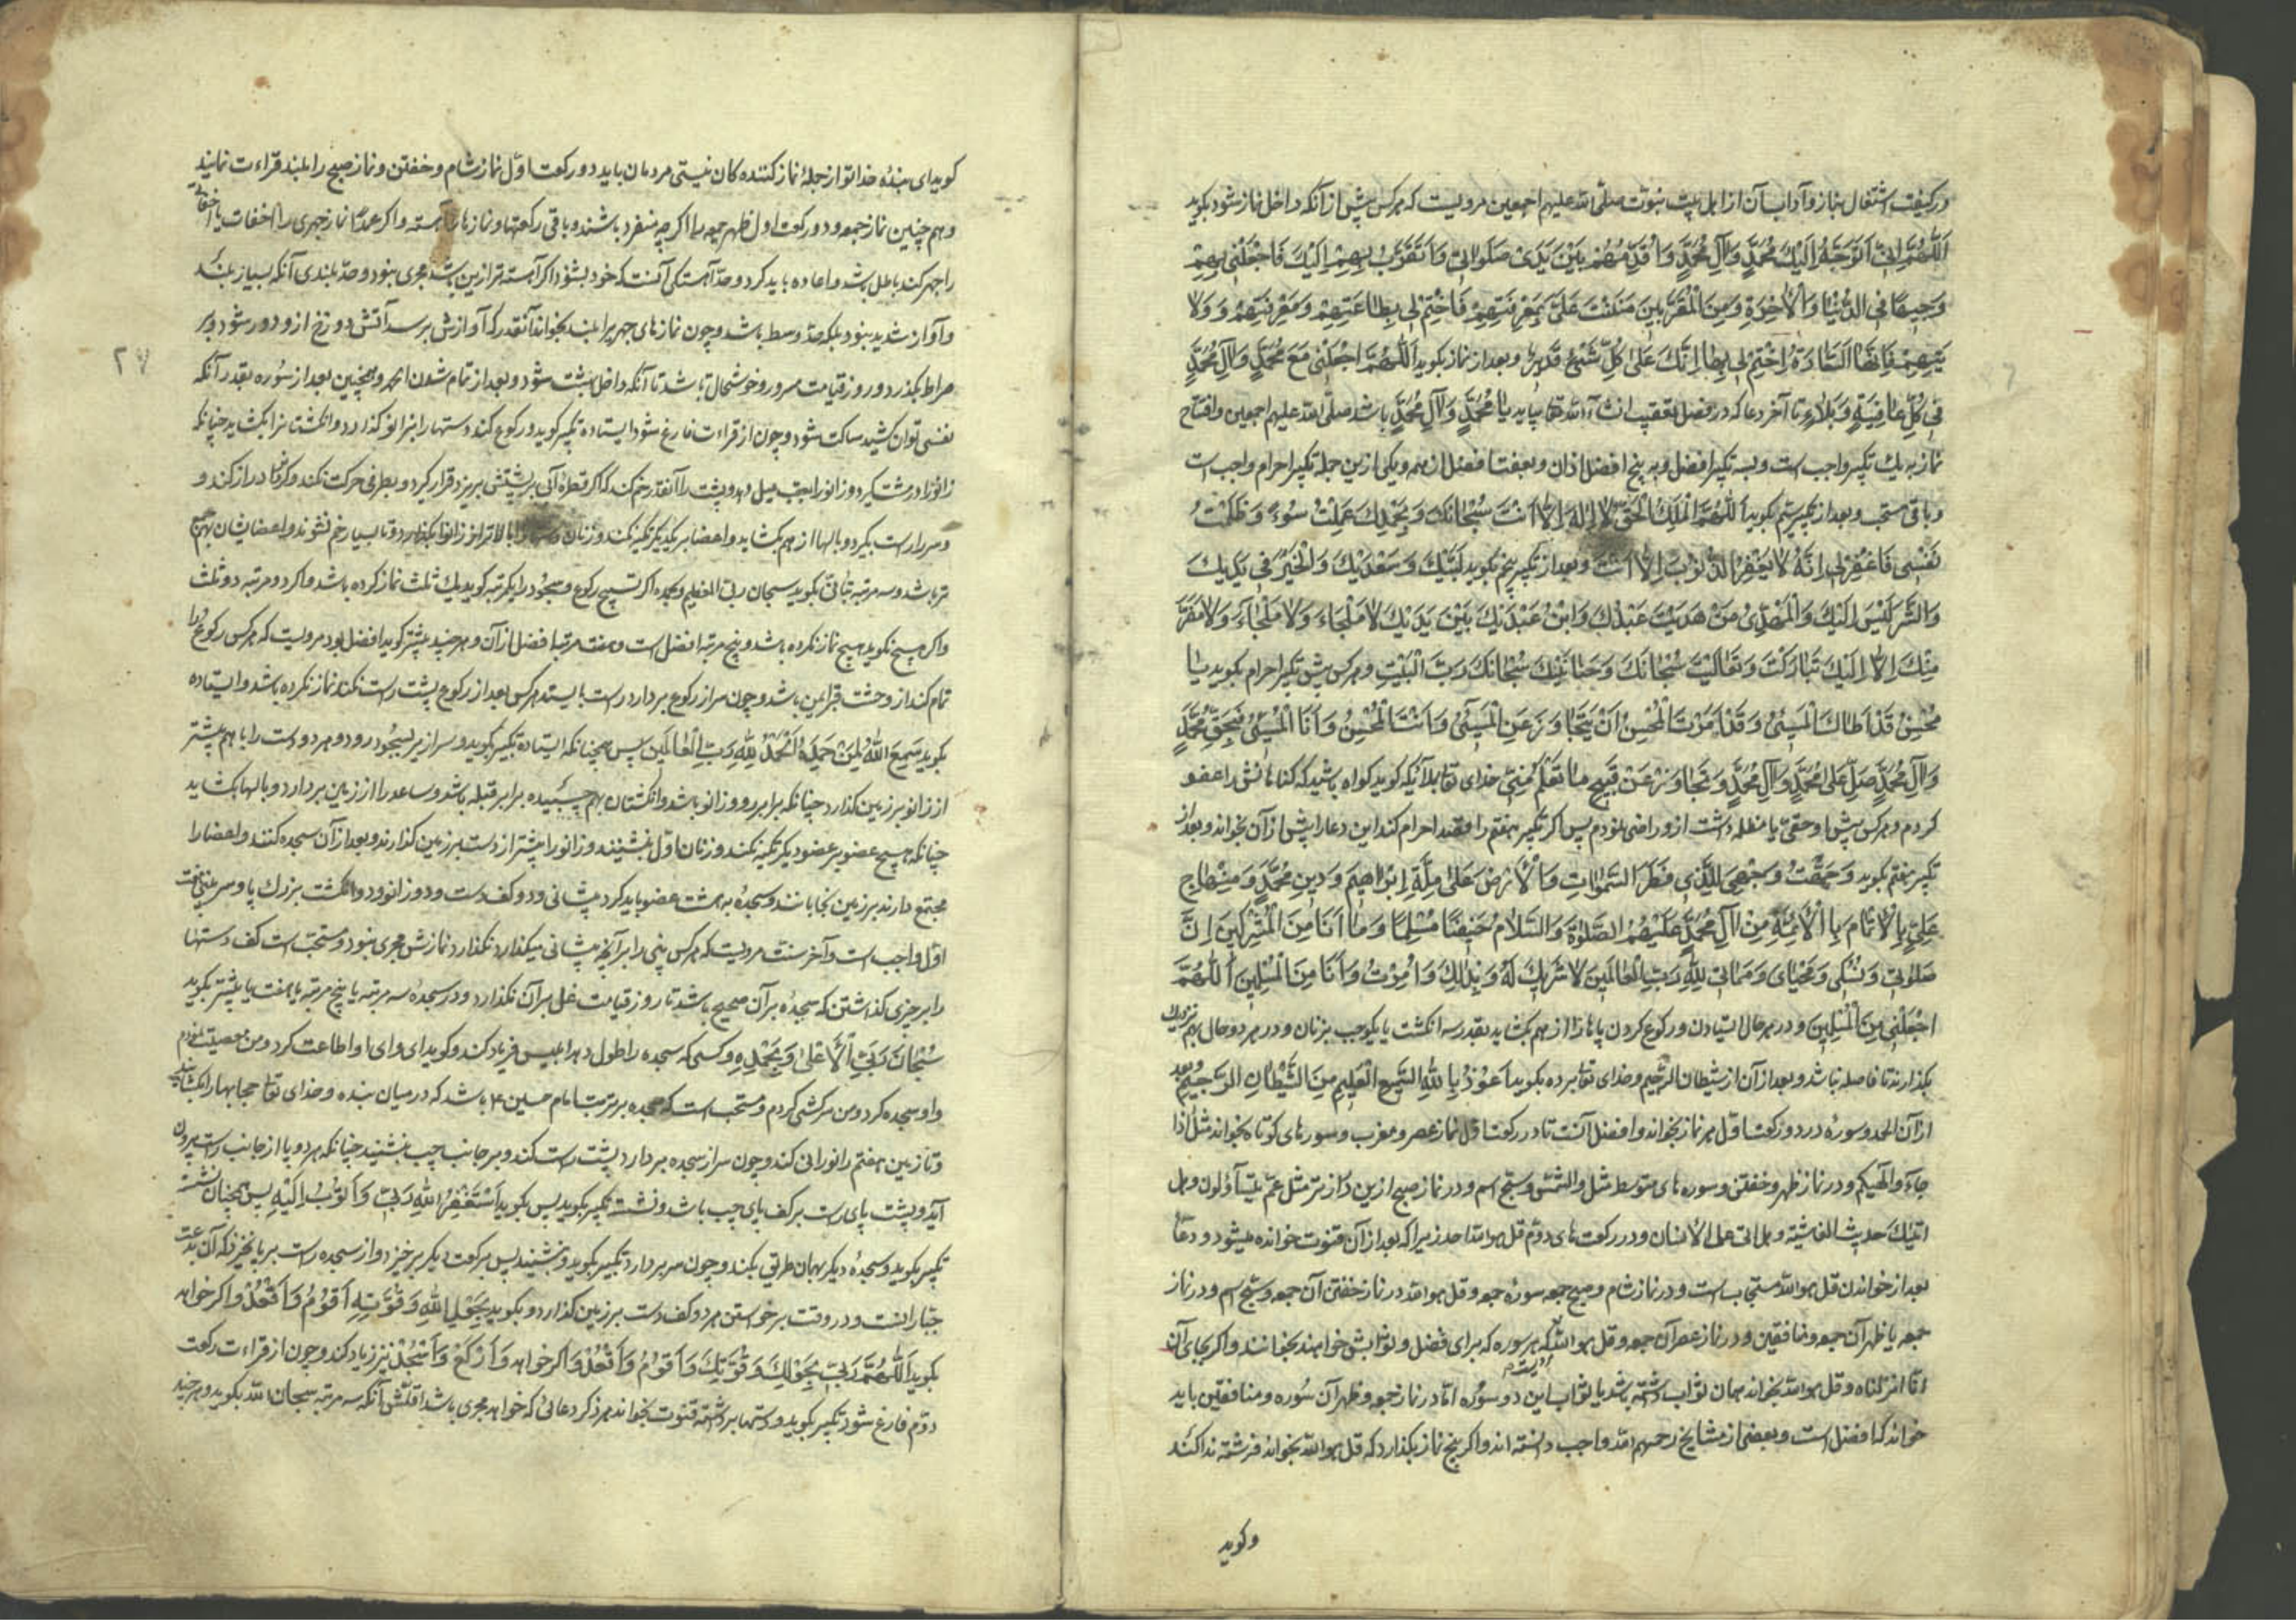 در کیفیت اشتغال بنماز و آداب آن از اهل بیت نبوت صلی الله علیهم اجمعین مرویست که هرکس پیش از آنکه داخل نماز شود بکوید
اَللّٰهُمَّ اِنّی اَتَوَجَّهُ اِلَیْكَ بمُحَمَّدٍ وَآلِ مُحَمَّدٍ وَاُقَدِّمُهُمْ بَیْنَ یَدَیْ صَلَواتی وَاَتَقَرَّبُ بِهِمْ اِلَیْكَ فَاجْعَلْنی بِهِمْ
وَجیهًا فِی الدُّنْیا وَالْآخِرَةِ وَمِنَ الْمُقَرَّبینَ مَنَنْتَ عَلَیَّ بِمَعْرِفَتِهِمْ فَاخْتِمْ لی بِطاعَتِهِمْ وَمَعْرِفَتِهِمْ وَوَلا
یَتِهِمْ فَاِنَّهَا السَّعادَةُ اِخْتِمْ لی بِها اِنَّكَ عَلیٰ کُلِّ شَیْءٍ قَدیرٌ و بعد از نماز بکوید اَللّٰهُمَّ اجْعَلْنی مَعَ مُحَمَّدٍ وَآلِ مُحَمَّدٍ
فی کُلِّ عافِیَةٍ وَبَلاءٍ تا آخر دعا که در فصل تعقیب انشآء الله تعا بیاید یا مُحَمَّدٍ وَآلِ مُحَمَّدٍ باشد صلی الله علیهم اجمعین و افتتاح
نماز به یك تکبیر واجب است و بسه تکبیر افضل و به پنج افضل ازان و بهفت افضل از همه و یکی ازین جمله تکبیر احرام واجب است
و باقی مستحب و بعد از تکبیر سیّم بکوید اَللّٰهُمَّ اَنْتَ الْمَلِكُ الْحَقُّ لا اِلٰهَ اِلّا اَنْتَ سُبْحانَكَ وَبِحَمْدِكَ عَمِلْتُ سُوءً وَظَلَمْتُ
نَفْسی فَاغْفِرْلی اِنَّهُ لا یَغْفِرُ الذُّنُوبَ اِلّا اَنْتَ و بعد از تکبیر پنجم بکوید لَبَّیْكَ وَسَعْدَیْكَ وَالْخَیْرُ فی یَدَیْكَ
وَالشَّرُّ لَیْسَ اِلَیْكَ وَالْمَهْدِیُّ مَنْ هَدَیْتَ عَبْدُكَ وَابْنُ عَبْدَیْكَ بَیْنَ یَدَیْكَ لا مَلْجَاءَ وَلا مَنْجاءَ وَلا مَفَرَّ
مِنْكَ اِلّا اِلَیْكَ تَبارَکْتَ وَتَعالَیْتَ سُبْحانَكَ وَحَنانَیْكَ سُبْحانَكَ رَبَّ الْبَیْتِ و هرکس پیش تکبیر احرام بکوید یا
مُحْسِنُ قَدْ اَتاكَ الْمُسیئُ وَقَدْ اَمَرْتَ الْمُحْسِنَ اَنْ یَتَجاوَزَ عَنِ الْمُسیئِ وَاَنْتَ الْمُحْسِنُ وَاَنَا الْمُسیئُ فَبِحَقِّ مُحَمَّدٍ
وَآلِ مُحَمَّدٍ صَلِّ عَلیٰ مُحَمَّدٍ وَآلِ مُحَمَّدٍ وَتَجاوَزْ عَنْ قَبیحِ ما تَعْلَمُ مِنّی خدای تعا بملائکه کوید کواه باشید که کناهانش را عفو
کردم و هرکس پیش او حقی یا مظلمه داشت ازو راضی نمودم پس اکر تکبیر هفتم را بقصد احرام کند این دعا را پیش از آن بخواند و بعد از
تکبیر هفتم بکوید وَجَّهْتُ وَجْهِیَ لِلَّذی فَطَرَ السَّمٰواتِ وَالْاَرْضَ عَلیٰ مِلَّةِ اِبْراهیمَ وَدینِ مُحَمَّدٍ وَمِنْهاجِ
عَلِیٍّ وَالْاِئْتِمامِ بِالْاَئِمَّةِ مِنْ آلِ مُحَمَّدٍ عَلَیْهِمُ الصَّلٰوةُ وَالسَّلامُ حَنیفًا مُسْلِمًا وَما اَنَا مِنَ الْمُشْرِکینَ اِنَّ
صَلوٰتی وَنُسُکی وَمَحْیایَ وَمَماتی لِلّٰهِ رَبِّ الْعالَمینَ لا شَریكَ لَهُ وَبِذٰلِكَ اُمِرْتُ وَاَنَا مِنَ الْمُسْلِمینَ اَللّٰهُمَّ
اجْعَلْنی مِنَ الْمُسْلِمینَ و در هر حال ایستادن و رکوع کردن پاها را از هم بکشاید بقدر سه انکشت یا یکوجب و زنان در هر دو حال بهم نزدیك
بکذارند تا فاصله نباشد و بعد از آن از شیطان الرجیم بخدای تعا برده بکوید اَعُوذُ بِاللّٰهِ السَّمیعِ الْعَلیمِ مِنَ الشَّیْطانِ الرَّجیمِ و بعد
از آن الحمد و سوره در دو رکعت اوّل هر نماز بخواند و افضل آنست تا در رکعت اوّل نماز عصر و مغرب و سورهای کوتاه بخواند مثل اذا
جآء و الهیکم و در نماز ظهر و خفتن و سوره های متوسط مثل والشمس و سبح اسم و در نماز صبح ازین دراز تر مثل عمّ یتسآءلون و هل
اتیك حدیث الغاشیة و هل اتی علی الانسان و در رکعت های دوّم قل هو الله احد زیرا که بعد از آن قنوت خوانده میشود و دعا
بعد از خواندن قل هو الله مستجاب است و در نماز شام و صبح جمعه سورۀ جمعه و قل هو الله در نماز خفتن آن جمعه و سبح اسم و در نماز
جمعه یا ظهر آن جمعه و منافقین و در نماز عصر آن جمعه و قل هو الله که هر سوره که برای فضل و ثوابش خواهند بخوانند و اکر بجای آن
انّا انزلناه و قل هو الله بخواند همان ثواب داشته باشد با ثواب این دو سوره امّا در نماز جمعه و ظهر آن سوره و منافقین باید
خواند که افضل است و بعضی از مشایخ رحمهم الله واجب دانسته اند و اکر پنج نماز بکذارد که قل هو الله نخواند فرشته ندا کند
و کوید
۲۷
کوید ای بندۀ خدا تو از جملۀ نماز کننده کان نیستی مردمان باید دو رکعت اوّل نماز شام و خفتن و نماز صبح را بلند قراءت نمایند
و هم چنین نماز جمعه و دو رکعت اول ظهر جمعه را اکر چه منفرد باشند و باقی رکعتها و نمازها را آهسته و اکر عمدًا نماز جهری را اخفات یا اخفات
را جهر کند باطل باشد و اعاده باید کرد و حدّ آهستکی آنست که خود بشنود اکر آهسته تر ازین باشد مجزی نبود و حدّ بلندی آنکه بسیار بلند
و آواز شدید نبود بلکه حدّ وسط باشد و چون نمازهای جهریرا بلند بخواند آنقدر که آوازش برسد آتش دوزخ ازو دور شود و بر
صراط بکذرد و روز قیامت مسرور و خوشحال باشد تا آنکه داخل بهشت شود و بعد از تمام شدن الحمد و همچنین بعد از سوره بقدر آنکه
نفسی توان کشید ساکت شود و چون از قراءت فارغ شود ایستاده تکبیر کوید و رکوع کند و دستها را بزانو کذارد و انکشتانرا بکشاید چنانکه
زانو را در مشت کیرد و زانو را بعقب میل دهد و پشت را آنقدر خم کند که اکر قطرۀ آبی بر پشتش بریزد قرار کیرد و بطرفی حرکت نکند و کردن را دراز کند و
و سر را راست بکیرد و بالها از هم بکشاید و اعضا بر یکدیکر تکیه نکند و زنان دستها را بالاتر از زانو بکذارند تا بسیار خم نشوند و اعضایشان بهم
تر باشد و سه مرتبه بتانّی بکوید سبحان ربی العظیم و بحمده اکر تسبیح رکوع و سجود را یکمرتبه کوید یك ثلث نماز کرده باشد و اکر دو مرتبه دو ثلث
و اکر هیچ نکوید هیچ نماز نکرده باشد و پنج مرتبه افضل است و هفت مرتبه افضل از آن و هر چند بیشتر کوید افضل بود مرویست که هرکس رکوع را
تمام کند از وحشت قبر ایمن باشد و چون سر از رکوع بردارد راست بایستد هرکس بعد از رکوع پشت راست نکند نماز نکرده باشد و ایستاده
بکوید سَمِعَ اللّٰهُ لِمَنْ حَمِدَهُ اَلْحَمْدُ لِلّٰهِ رَبِّ الْعالَمینَ پس همچنانکه ایستاده تکبیر بکوید و سرازیر بسجود رود و هر دو دست را با هم پیشتر
از زانو بر زمین کذارد چنانکه برابر رو و زانو باشد و انکشتان بهم چسبیده برابر قبله باشد و ساعد را از زمین بردارد و بالها بکشاید
چنانکه هیچ عضو بر عضو دیکر تکیه نکند و زنان اوّل بنشینند و زانو را پیشتر از دست بر زمین کذارند و بعد از آن سجده کنند و اعضا را
مجتمع دارند بر زمین بخوابانند و سجده به هشت عضو باید کرد پیشانی و دو کف دست و دو زانو و دو انکشت بزرك پا و سر بینی هفت
اوّل واجب است و آخر سنت مرویست که هرکس بینی را برابر آنچه پیشانی میکذارد نکذارد نمازش مجزی نبود و مستحب است کف دستها
را بر چیزی کذاشتن که سجده بر آن صحیح باشد تا روز قیامت غل بر آن نکذارد و در سجده سه مرتبه یا پنج مرتبه یا هفت یا بیشتر بکوید
سُبْحانَ رَبِّیَ الْاَعْلیٰ وَبِحَمْدِهِ و کسی که سجده را طول دهد ابلیس فریاد کند و کوید ای وای او اطاعت کرد و من معصیت نمودم
و او سجده کرد و من سرکشی کردم و مستحب است که سجده بر تربت امام حسین ع باشد که در میان بنده و خدای تعا حجابها را بکشاید
و تا زمین هفتم را نورانی کند و چون سر از سجده بردارد پشت راست کند و بر جانب چپ بنشیند چنانکه هر دو پا از جانب راست بیرون
آید و پشت پای راست بر کف پای چپ باشد و نشسته تکبیر بکوید پس بکوید اَسْتَغْفِرُ اللّٰهَ رَبّی وَاَتُوبُ اِلَیْهِ پس همچنان نشسته
تکبیر بکوید و سجدۀ دیکر بهمان طریق بکند و چون سر بردارد تکبیر بکوید و بنشیند پس برکعت دیکر برخیزد و از سجده راست بر پا نخیزد که آن بدعت
جبارانست و در وقت برخواستن هر دو کف دست بر زمین کذارد و بکوید بِحَوْلِ اللّٰهِ وَقُوَّتِهِ اَقُومُ وَاَقْعُدُ و اکر خواهد
بکوید اَللّٰهُمَّ رَبّی بِحَوْلِكَ وَقُوَّتِكَ اَقُومُ وَاَقْعُدُ و اکر خواهد وَاَرْکَعُ وَاَسْجُدُ نیز زیاد کند و چون از قراءت رکعت
دوّم فارغ شود تکبیر بکوید و دستها برداشته قنوت بخواند هر ذکر دعائی که خواهد مجزی باشد اقلّش آنکه سه مرتبه سبحان الله بکوید و هر چند